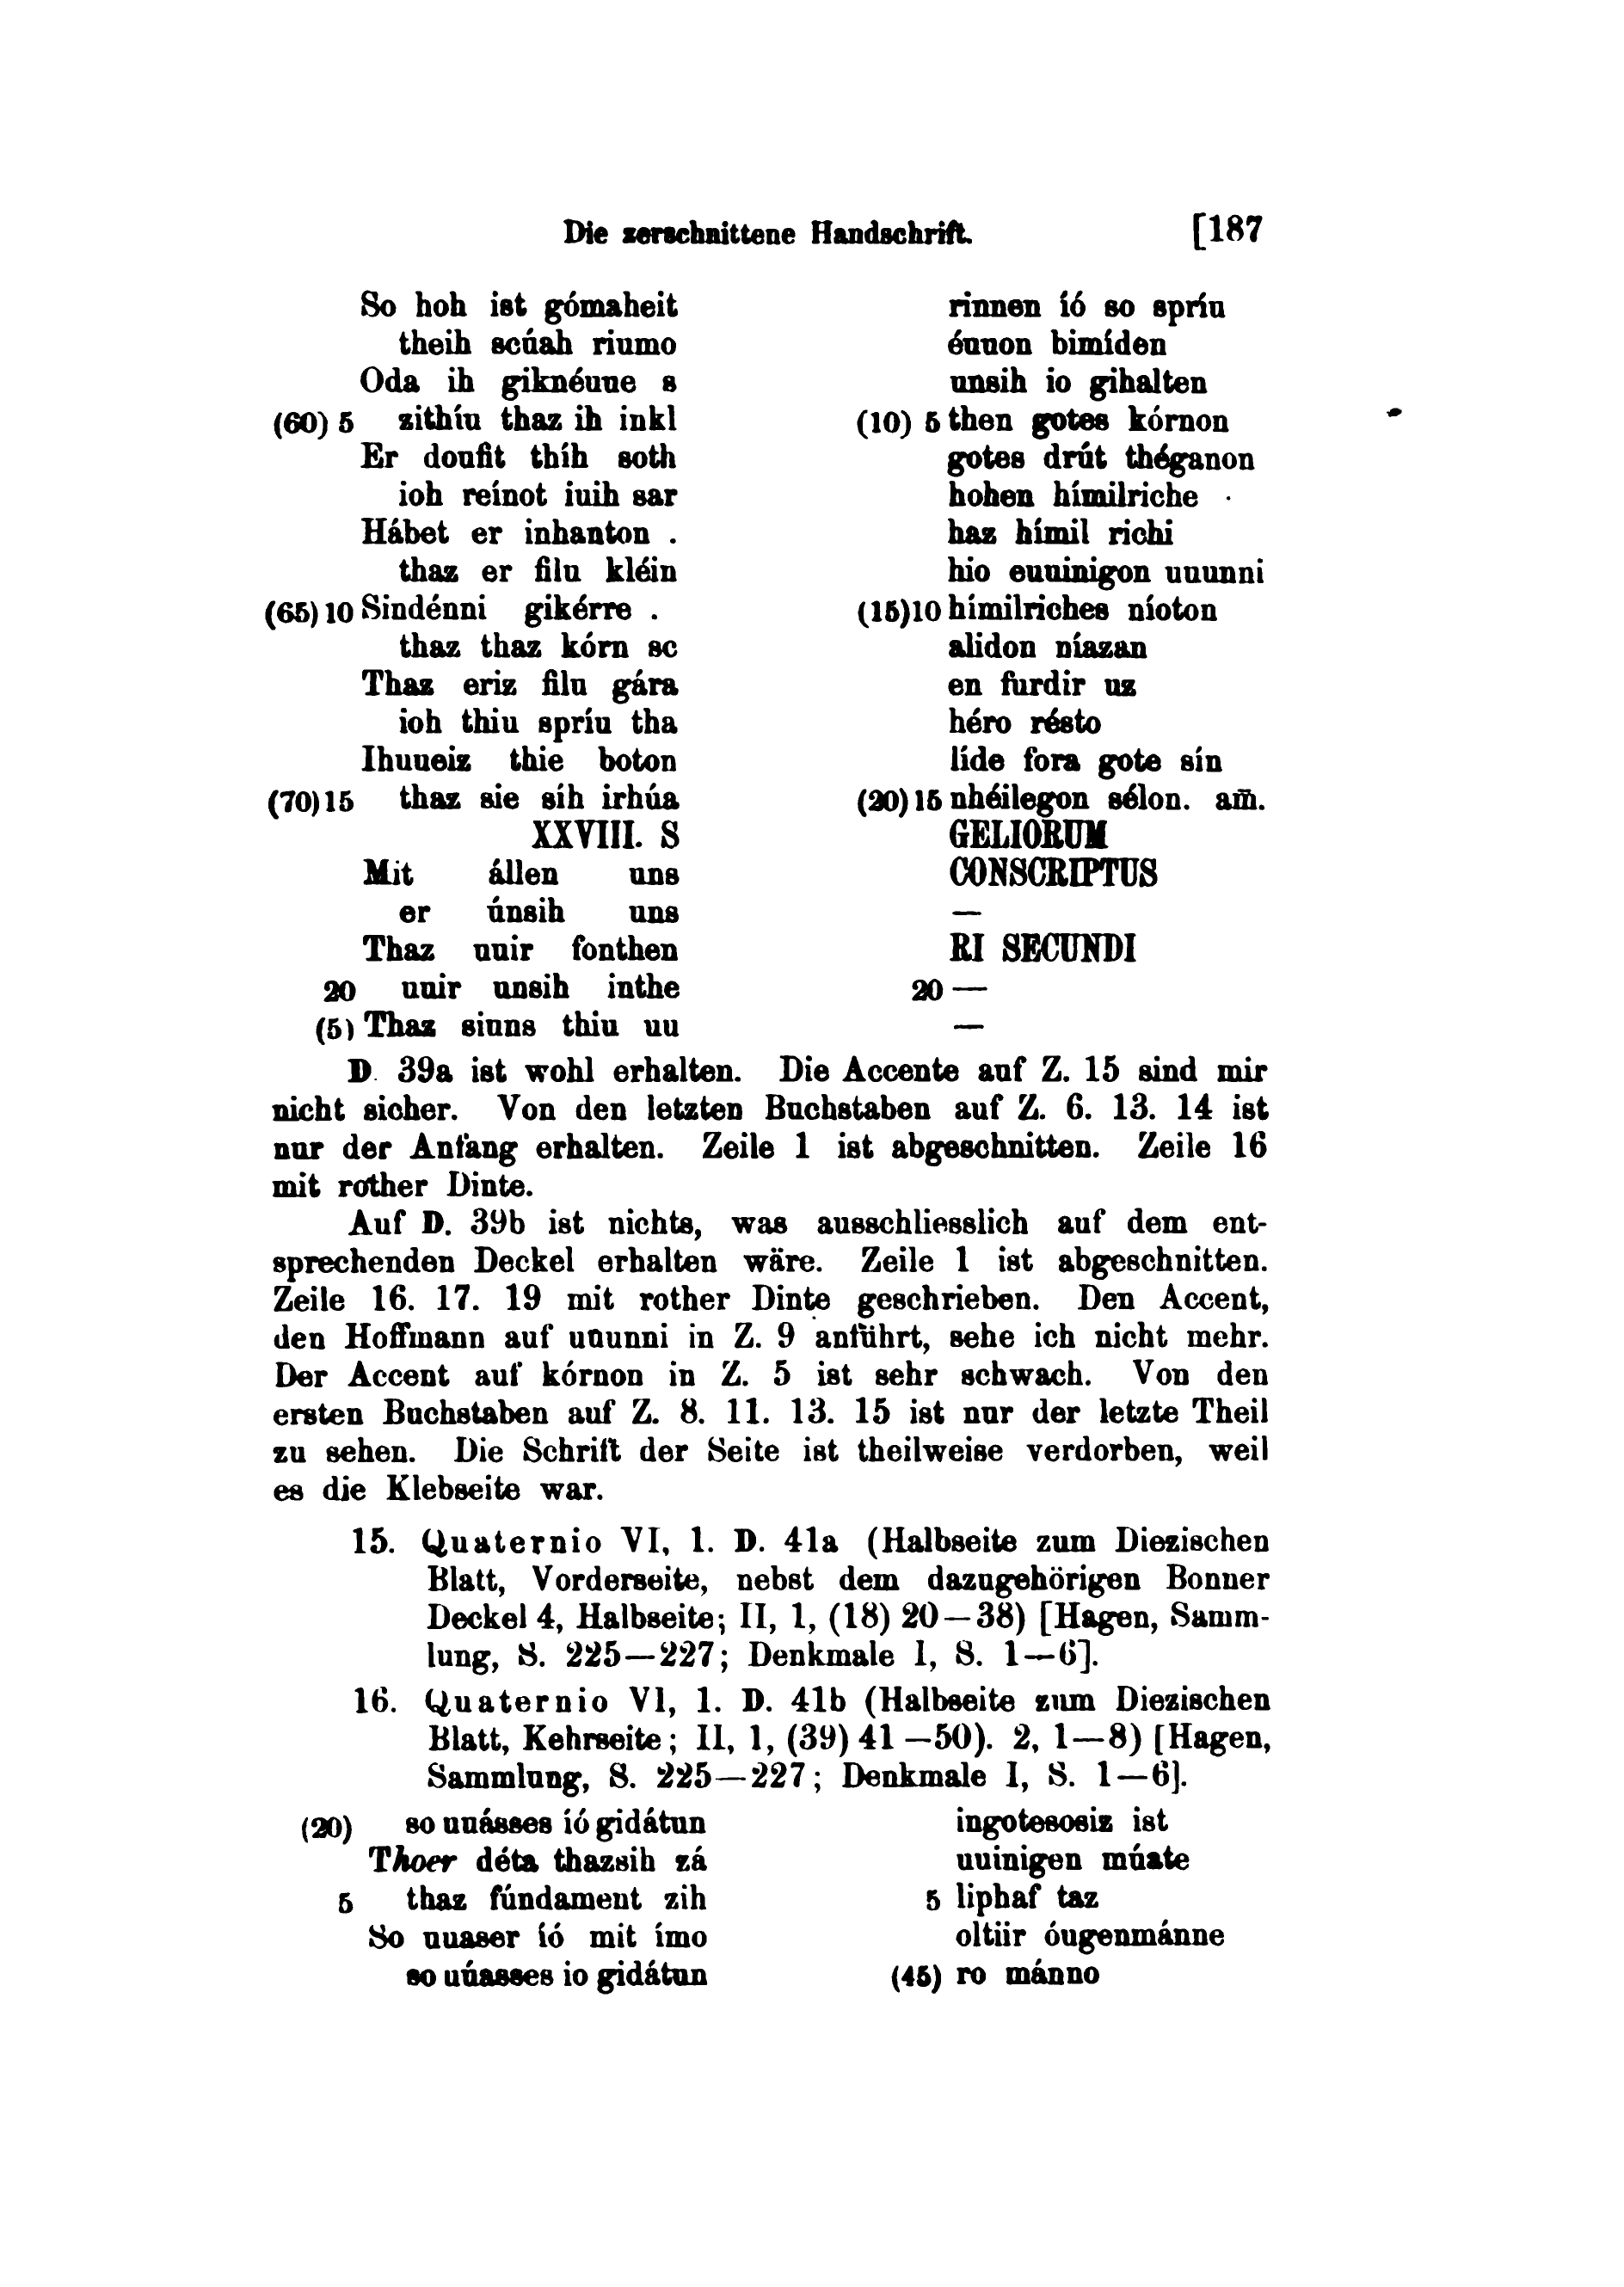 Die zerschnittene Handschrift. [187
So hoh ist gómaheit
theih scúah riumo
Oda ih giknéuue s
(60) 5 zithíu thaz ih inkl
Er doufit thíh soth
ioh reínot iuih sar
Hábet er inhanton .
thaz er filu kléin
(65) 10 Sindénni gikérre .
thaz thaz kórn sc
Thaz eriz filu gára
ioh thiu spríu tha
Ihuueiz thie boton
(70) 15 thaz sie síh irhúa
XXVIII. S
Mit állen uns
er únsih uns
Thaz uuir fonthen
20 uuir unsih inthe
(5) Thaz siuns thiu uu
rinnen íó so spríu
éuuon bimíden
unsih io gihalten
(10) 5 then gotes kórnon
gotes drút théganon
hohen hímilriche ·
haz hímil richi
hio euuinigon uuunni
(15) 10 hímilriches níoton
alidon níazan
en furdir uz
héro résto
líde fora gote sín
(20) 15 nhéilegon sélon. am̄.
GELIORUM
CONSCRIPTUS
—
RI SECUNDI
20 —
—
D. 39a ist wohl erhalten. Die Accente auf Z. 15 sind mir
nicht sicher. Von den letzten Buchstaben auf Z. 6. 13. 14 ist
nur der Anfang erhalten. Zeile 1 ist abgeschnitten. Zeile 16
mit rother Dinte.
Auf D. 39b ist nichts, was ausschliesslich auf dem ent-
sprechenden Deckel erhalten wäre. Zeile 1 ist abgeschnitten.
Zeile 16. 17. 19 mit rother Dinte geschrieben. Den Accent,
den Hoffmann auf uuunni in Z. 9 anführt, sehe ich nicht mehr.
Der Accent auf kórnon in Z. 5 ist sehr schwach. Von den
ersten Buchstaben auf Z. 8. 11. 13. 15 ist nur der letzte Theil
zu sehen. Die Schrift der Seite ist theilweise verdorben, weil
es die Klebseite war.
15. Quaternio VI, 1. D. 41a (Halbseite zum Diezischen
Blatt, Vorderseite, nebst dem dazugehörigen Bonner
Deckel 4, Halbseite; II, 1, (18) 20—38) [Hagen, Samm-
lung, S. 225—227; Denkmale I, S. 1—6].
16. Quaternio VI, 1. D. 41b (Halbseite zum Diezischen
Blatt, Kehrseite; II, 1, (39) 41—50). 2, 1—8) [Hagen,
Sammlung, S. 225—227; Denkmale I, S. 1—6].
(20) so uuásses íó gidátun
Thoer déta thazsih zá
5 thaz fúndament zih
So uuaser íó mit ímo
so uúasses io gidátun
ingotesosiz ist
uuinigen múate
5 liphaf taz
oltiir óugenmánne
(45) ro mánno